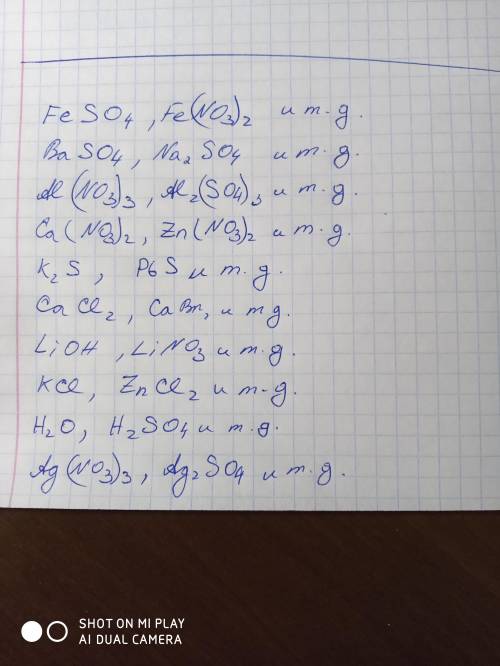 FeSO4, Fe(NO3)2 и т.д.
BaSO4, Na2SO4 и т.д.
Al(NO3)3, Al2(SO4)3 и т.д.
Ca(NO3)2, Zn(NO3)2 и т.д.
K2S, PbS и т.д.
CaCl2, CaBr2 и т д.
LiOH, LiNO3 и т.д.
KCl, ZnCl2 и т.д.
H2O, H2SO4 и т.д.
Ag(NO3)3, Ag2SO4 и т.д.
SHOT ON MI PLAY
AI DUAL CAMERA